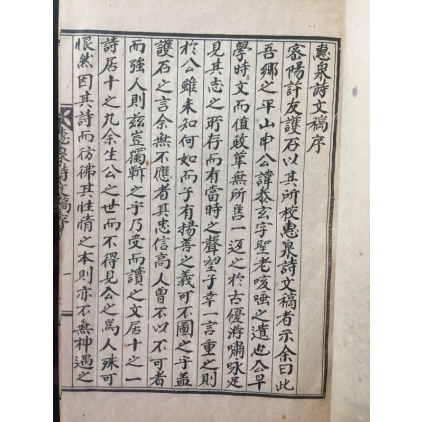 惠泉詩文稿序
密陽許友護石以其所校惠泉詩文稿者示余曰此
吾鄉之平山申公諱泰玄字聖老咳唾之遺也公早
學時文而值政革無所售一返之於古優游嘯咏足
見其志之所存而有當時之聲望子幸一言重之則
於公雖未知何如而子有揚善之義可不圖之乎蓋
護石之言余無不應者其忠信高人曾不以不可者
而強人則玆豈獨斬之乎乃受而讀之文居十之一
詩居十之九余生公之世而不得見公之爲人殊可
恨然因其詩而彷彿其性情之本則亦不無神遇之
惠泉詩文稿序
一